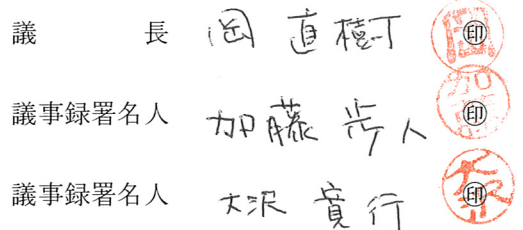 議長 岡 直樹 ㊞
議事録署名人 加藤 歩人 ㊞
議事録署名人 大沢 寛行 ㊞